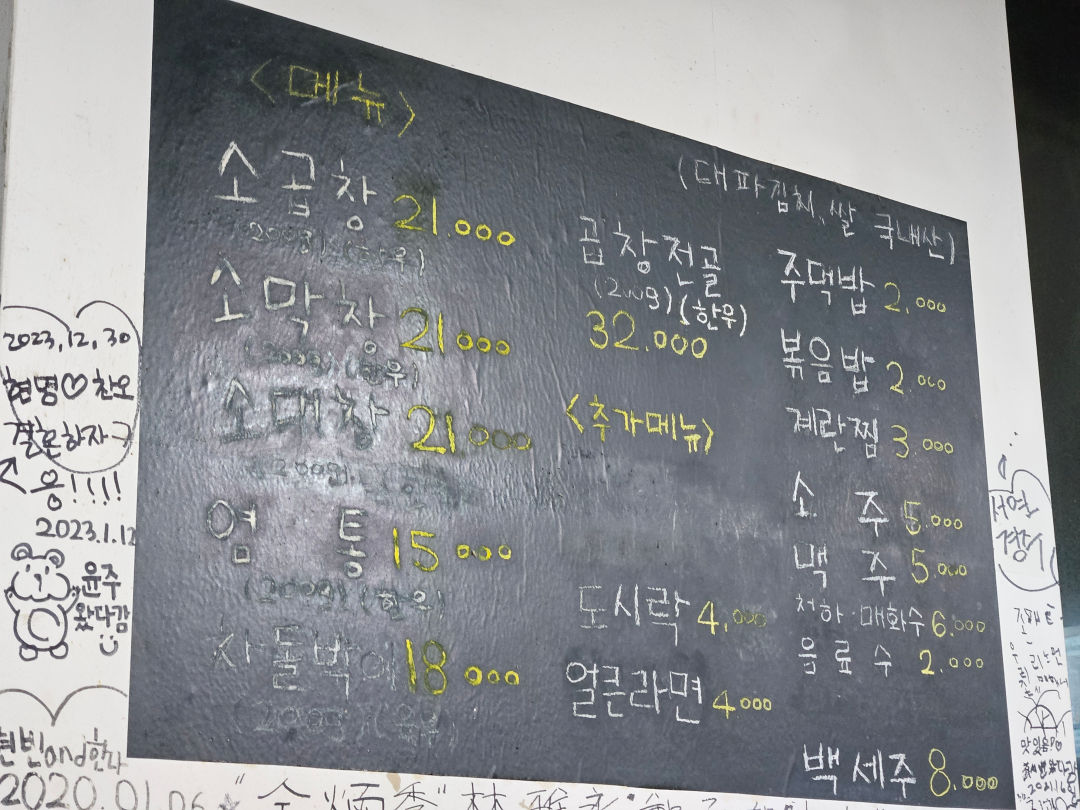 <메뉴>
소곱창 21.000
(200g) (한우)
소막창 21.000
(200g) (한우)
소대창 21.000
(200g)
염통 15.000
(200g) (한우)
차돌박이 18.000
(200g)
곱창전골
(200g)(한우)
32.000
<추가메뉴>
도시락 4.000
얼큰라면 4.000
(대파김치, 쌀 국내산)
주먹밥 2.000
볶음밥 2.000
계란찜 3.000
소주 5.000
맥주 5.000
청하·매화수 6.000
음료수 2.000
백세주 8.000
2023.12.30
현명♡찬오
결혼하자
응!!!!
2023.1.12
윤주
왔다감
현빈and한나
2020.01.06
서연
경수
맛있음!♡